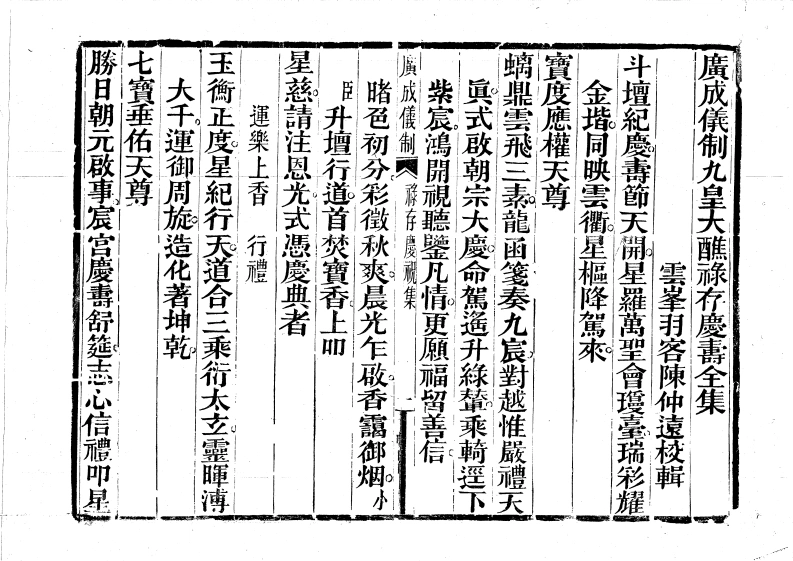 廣成儀制九皇大醮祿存慶壽全集
雲峯羽客陳仲遠校輯
斗壇紀慶壽節天開星羅萬聖會瓊臺瑞彩耀
金堦同映雲衢星樞降駕來
寶度應權天尊
螭鼎雲飛三素龍函箋奏九宸對越惟嚴禮天
眞式啟朝宗大慶命駕遙升綠輦乘輢逕下
紫宸鴻開視聽鑒凡情更願福留善信
廣成儀制 祿存慶祝集 一
睹色初分彩徵秋爽晨光乍啟香靄御烟小
臣升壇行道首焚寶香上叩
星慈請注恩光式憑慶典者
運樂上香 行禮
玉衡正度星紀行天道合三乘衍太立靈暉溥
大千運御周旋造化著坤乾
七寶垂佑天尊
勝日朝元啟事宸宮慶壽舒筵志心信禮叩星